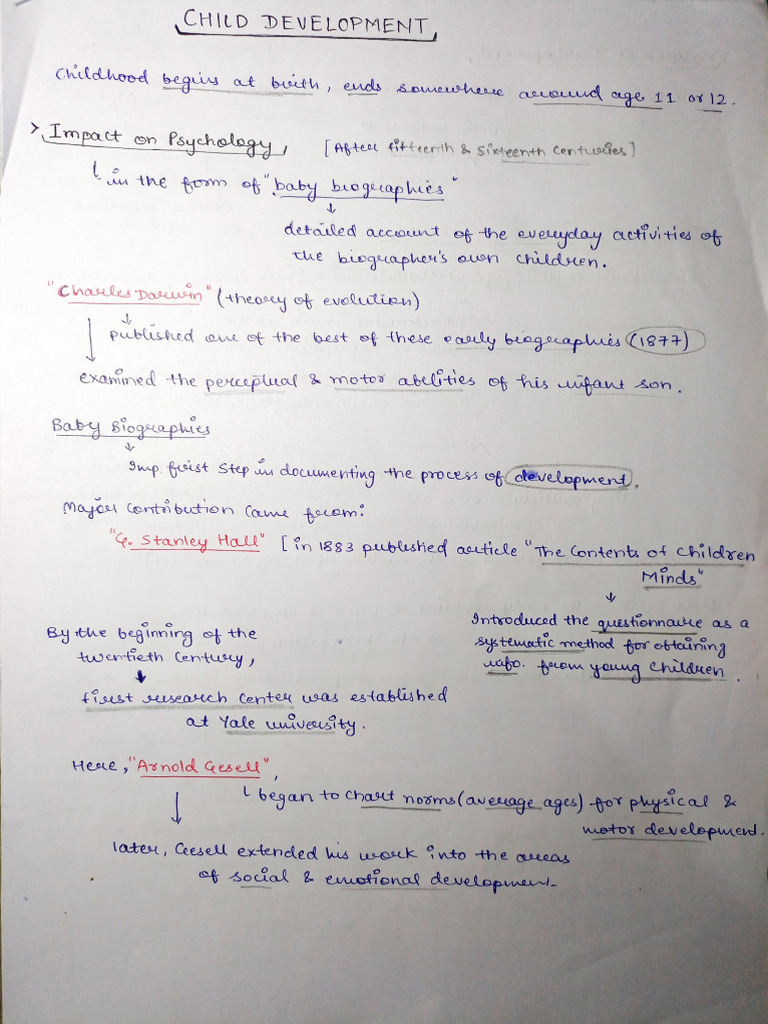 CHILD DEVELOPMENT
Childhood begins at birth, ends somewhere around age 11 or 12.
> Impact on Psychology, [After fifteenth & Sixteenth Centuries]
in the form of "baby biographies"
↓
detailed account of the everyday activities of
the biographer's own children.
"Charles Darwin" (theory of evolution)
↓
published one of the best of these early biographies (1877)
examined the perceptual & motor abilities of his infant son.
Baby Biographies
↓
Imp. first Step in documenting the process of development.
Major Contribution Came from:
"G. Stanley Hall" [in 1883 published article "The Contents of Children
Minds"
↓
Introduced the questionnaire as a
systematic method for obtaining
info. from young Children.
By the beginning of the
twentieth Century,
↓
first research Center was established
at Yale university.
Here, "Arnold Gesell",
began to Chart norms (average ages) for physical &
motor development.
↓
later, Gesell extended his work into the areas
of social & emotional development.